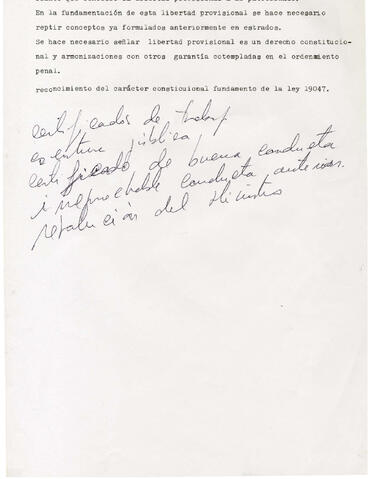 En la fundamentación de esta libertad provisional se hace necesario
reptir conceptos ya formulados anteriormente en estrados.
Se hace necesario señlar libertad provisional es un derecho constitucio-
nal y armonizaciones con otros garantía cotempladas en el ordenamiento
penal.
reconocimiento del carácter consticuional fundamento de la ley 19047.
certificados de trabajo
escritura pública
certificado de buena conducta
irreprochable conducta anterior.
resolución del Ministro